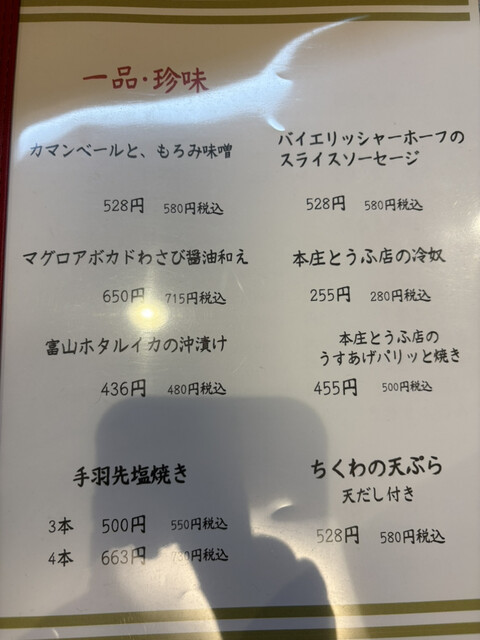 一品・珍味
カマンベールと、もろみ味噌
528円 580円税込
マグロアボカドわさび醤油和え
650円 715円税込
富山ホタルイカの沖漬け
436円 480円税込
手羽先塩焼き
3本 500円 550円税込
4本 663円 730円税込
バイエリッシャーホーフの
スライスソーセージ
528円 580円税込
本庄とうふ店の冷奴
255円 280円税込
本庄とうふ店の
うすあげパリッと焼き
455円 500円税込
ちくわの天ぷら
天だし付き
528円 580円税込